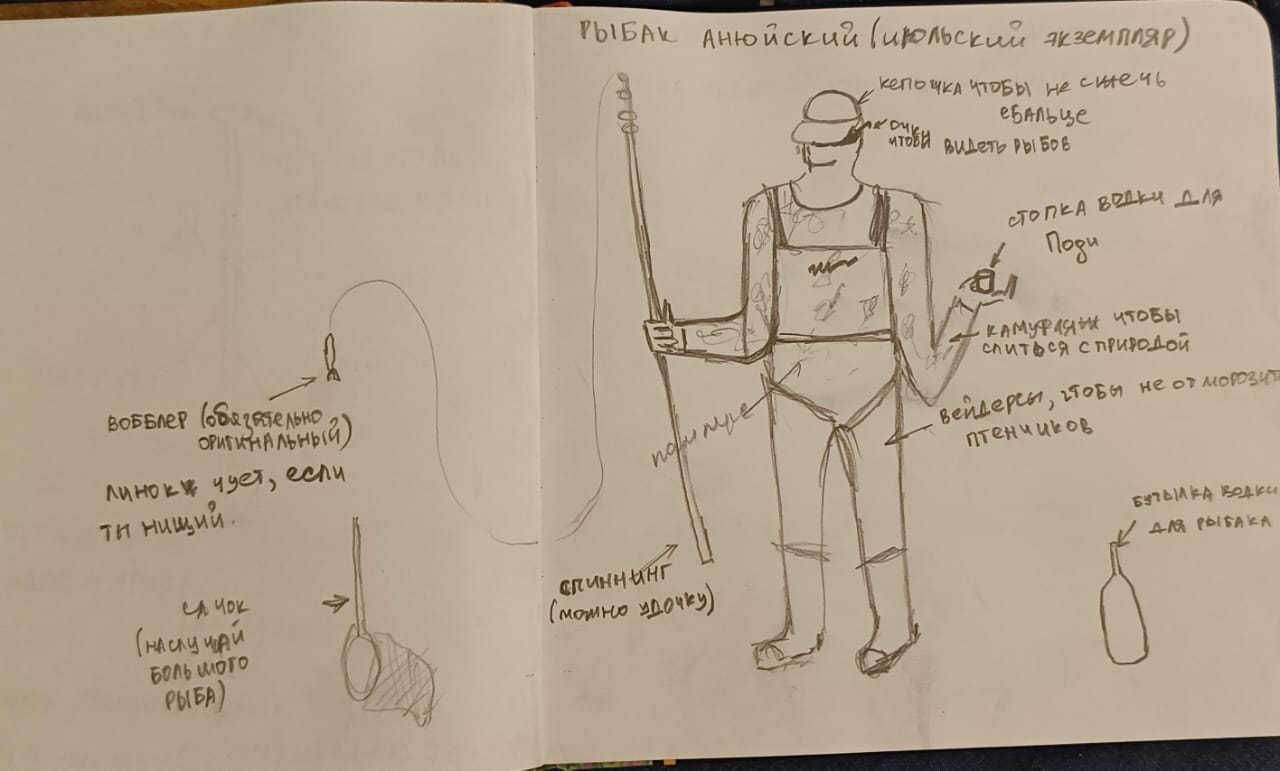 РЫБАК АНЮЙСКИЙ (июльский экземпляр)
КЕПОЧКА ЧТОБЫ не сжечь
еБАЛЬЦЕ
ОЧКИ
ЧТОБЫ ВИДЕТЬ РЫБОВ
СТОПКА ВОДКИ ДЛЯ
Поди
КАМУФЛЯЖ ЧТОБЫ
СЛИТЬСЯ С ПРИРОДОЙ
ВЕЙДЕРСЫ, ЧТОБЫ НЕ ОТМОРОЗИТЬ
ПТЕНЧИКОВ
ВОББЛЕР (обязательно
ОРИГИНАЛЬНЫЙ)
ЛИНОК чует, если
ТЫ НИЩИЙ.
САЧОК
(НА СЛУЧАЙ
БОЛЬШОГО
РЫБА)
СПИННИНГ
(МОЖНО УДОЧКУ)
БУТЫЛКА ВОДКИ
ДЛЯ РЫБАКА